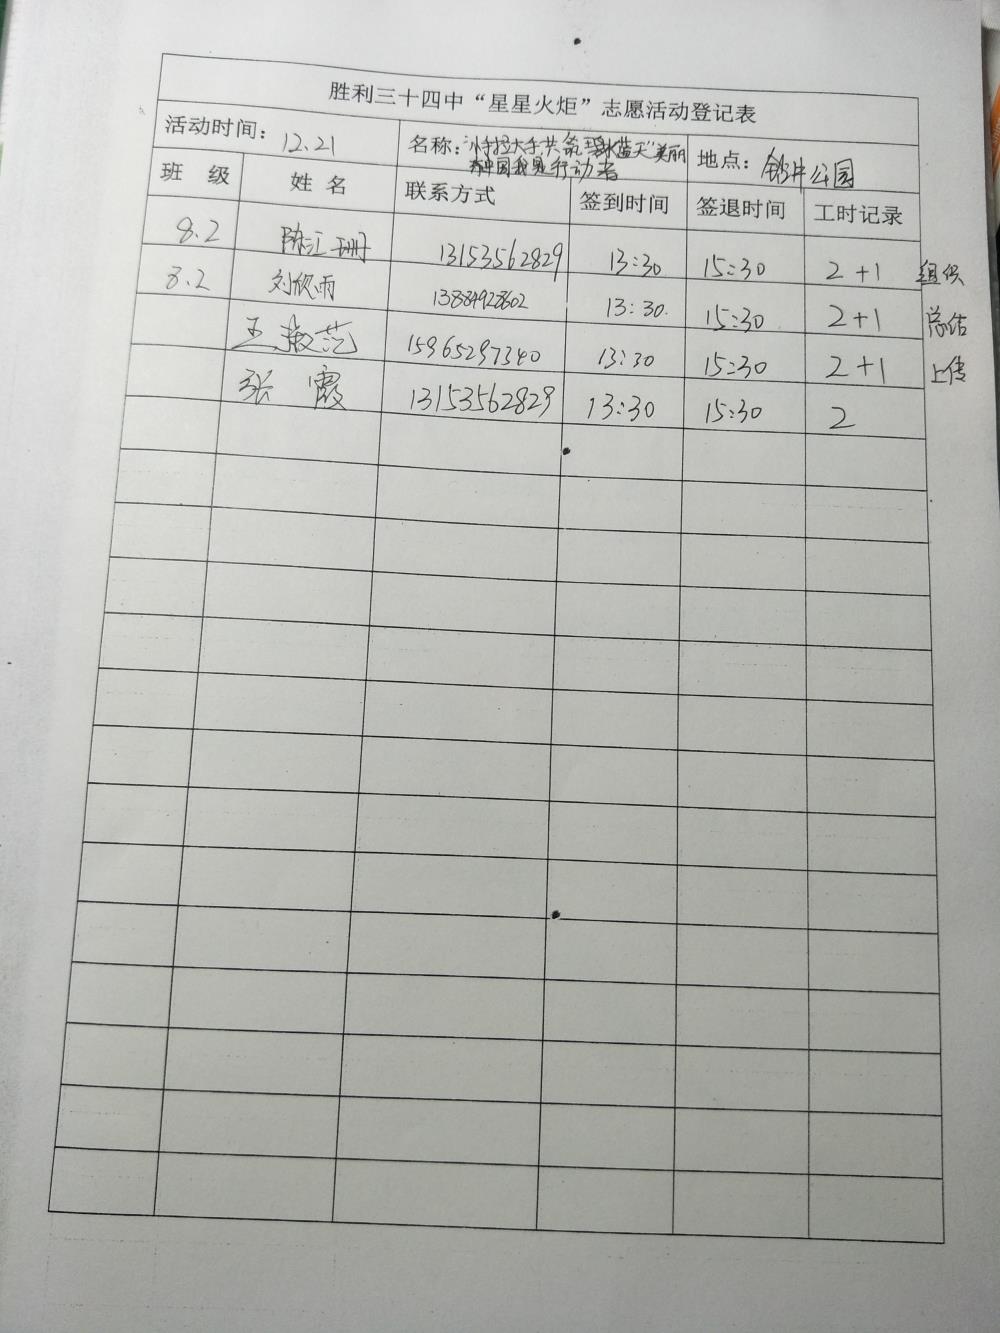 胜利三十四中“星星火炬”志愿活动登记表
活动时间：12.21 名称：“小手拉大手，共筑碧水蓝天”美丽 地点：公园
中国我是行动者
班 级 姓 名 联系方式 签到时间 签退时间 工时记录
8.2 陈江珊 13153562829 13:30 15:30 2+1 组织
8.2 刘欣雨 13884928602 13:30. 15:30 2+1 总结
王淑范 15965297340 13:30 15:30 2+1 上传
张 霞 13153562829 13:30 15:30 2